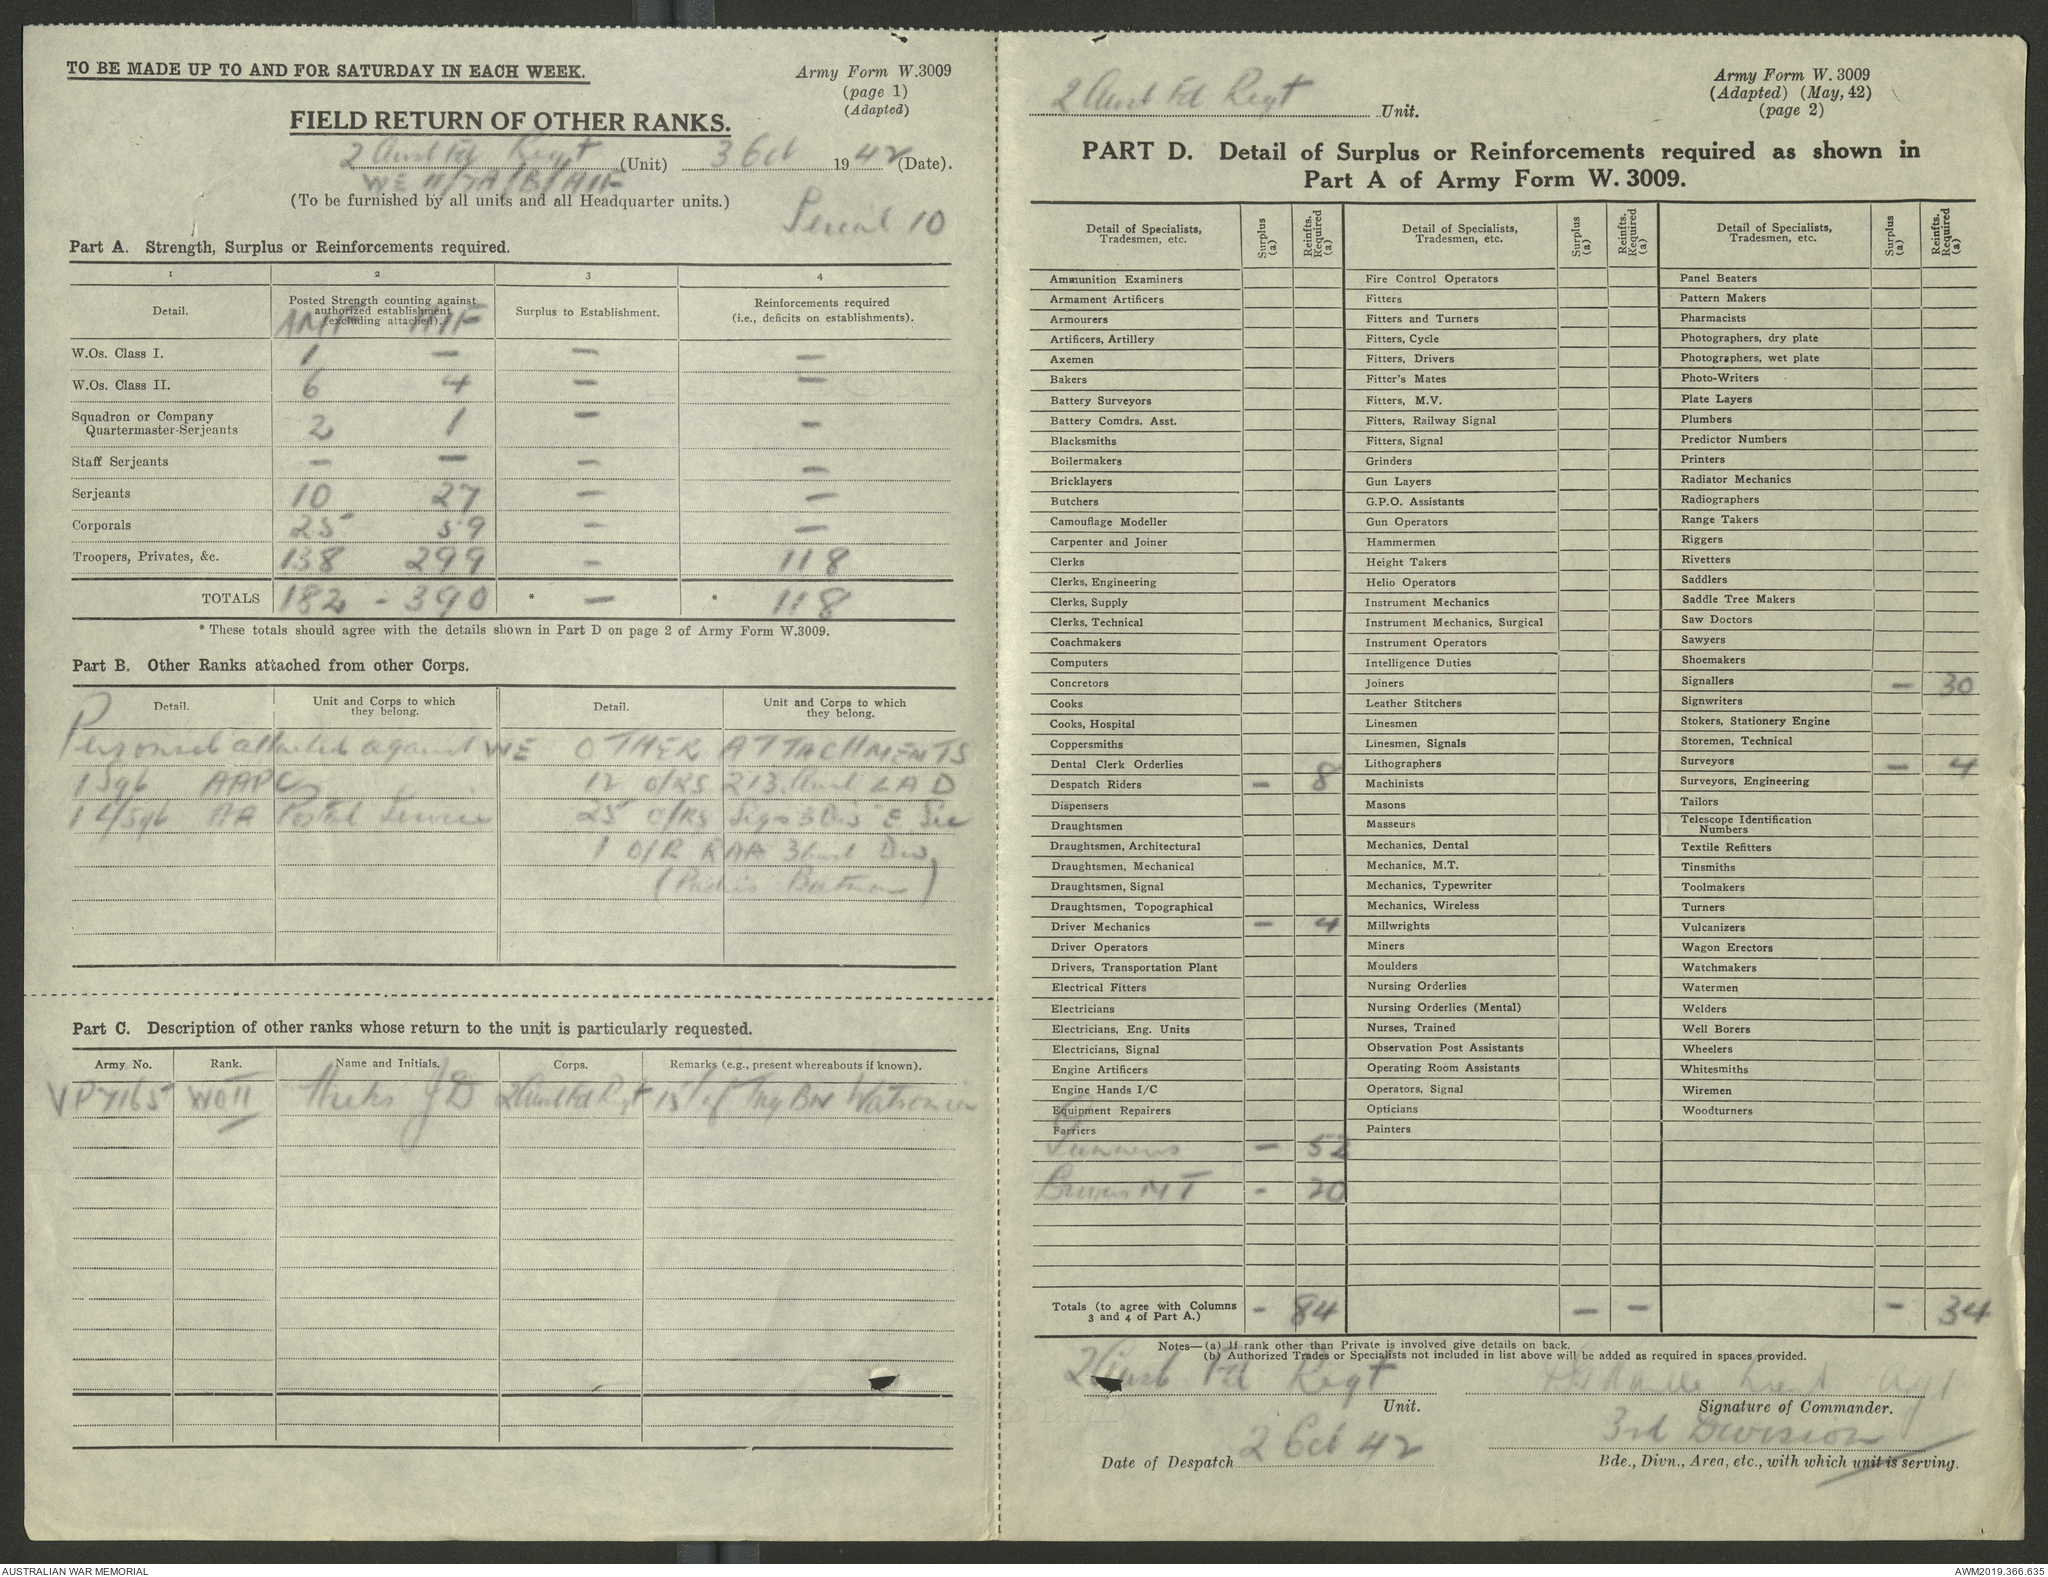 TO BE MADE UP TO AND FOR SATURDAY IN EACH WEEK.
Army Form W.3009
(page 1)
(Adapted)
FIELD RETURN OF OTHER RANKS.
2 Aust Fd Regt (Unit) 3 Oct 1942 (Date).
WE II/7A/B/AIF
(To be furnished by all units and all Headquarter units.)
Serial 10
Part A. Strength, Surplus or Reinforcements required.
1 2 3 4
Detail. Posted Strength counting against authorized establishment (excluding attached). Surplus to Establishment. Reinforcements required (i.e., deficits on establishments).
AMF AIF
W.Os. Class I. 1 — — —
W.Os. Class II. 6 4 — —
Squadron or Company Quartermaster-Serjeants 2 1 — —
Staff Serjeants — — — —
Serjeants 10 27 — —
Corporals 25 59 — —
Troopers, Privates, &c. 138 299 — 118
TOTALS 182 - 390 * — * 118
* These totals should agree with the details shown in Part D on page 2 of Army Form W.3009.
Part B. Other Ranks attached from other Corps.
Detail. Unit and Corps to which they belong. Detail. Unit and Corps to which they belong.
Personnel attached against WE OTHER ATTACHMENTS
1 Sgt AAPC 12 O/RS 213 Aust LAD
1 L/Sgt AA Postal Service 25 O/RS Sigs 3 Div "E" Sec
1 O/R RAA 3 Aust Div
(Padres Batman)
Part C. Description of other ranks whose return to the unit is particularly requested.
Army No. Rank. Name and Initials. Corps. Remarks (e.g., present whereabouts if known).
VP7165 WOII J D 2 Aust Fd Regt Trg Bn Watsonia
2 Aust Fd Regt Unit.
Army Form W. 3009
(Adapted) (May, 42)
(page 2)
PART D. Detail of Surplus or Reinforcements required as shown in
Part A of Army Form W. 3009.
Detail of Specialists, Tradesmen, etc. Surplus (a) Reinfts. Required (a)
Ammunition Examiners
Armament Artificers
Armourers
Artificers, Artillery
Axemen
Bakers
Battery Surveyors
Battery Comdrs. Asst.
Blacksmiths
Boilermakers
Bricklayers
Butchers
Camouflage Modeller
Carpenter and Joiner
Clerks
Clerks, Engineering
Clerks, Supply
Clerks, Technical
Coachmakers
Computers
Concretors
Cooks
Cooks, Hospital
Coppersmiths
Dental Clerk Orderlies
Despatch Riders — 8
Dispensers
Draughtsmen
Draughtsmen, Architectural
Draughtsmen, Mechanical
Draughtsmen, Signal
Draughtsmen, Topographical
Driver Mechanics — 4
Driver Operators
Drivers, Transportation Plant
Electrical Fitters
Electricians
Electricians, Eng. Units
Electricians, Signal
Engine Artificers
Engine Hands I/C
Equipment Repairers
Farriers
Gunners — 52
Drivers MT - 20
Totals (to agree with Columns 3 and 4 of Part A.) - 84
Detail of Specialists, Tradesmen, etc. Surplus (a) Reinfts. Required (a)
Fire Control Operators
Fitters
Fitters and Turners
Fitters, Cycle
Fitters, Drivers
Fitter's Mates
Fitters, M.V.
Fitters, Railway Signal
Fitters, Signal
Grinders
Gun Layers
G.P.O. Assistants
Gun Operators
Hammermen
Height Takers
Helio Operators
Instrument Mechanics
Instrument Mechanics, Surgical
Instrument Operators
Intelligence Duties
Joiners
Leather Stitchers
Linesmen
Linesmen, Signals
Lithographers
Machinists
Masons
Masseurs
Mechanics, Dental
Mechanics, M.T.
Mechanics, Typewriter
Mechanics, Wireless
Millwrights
Miners
Moulders
Nursing Orderlies
Nursing Orderlies (Mental)
Nurses, Trained
Observation Post Assistants
Operating Room Assistants
Operators, Signal
Opticians
Painters
— —
Detail of Specialists, Tradesmen, etc. Surplus (a) Reinfts. Required (a)
Panel Beaters
Pattern Makers
Pharmacists
Photographers, dry plate
Photographers, wet plate
Photo-Writers
Plate Layers
Plumbers
Predictor Numbers
Printers
Radiator Mechanics
Radiographers
Range Takers
Riggers
Rivetters
Saddlers
Saddle Tree Makers
Saw Doctors
Sawyers
Shoemakers
Signallers — 30
Signwriters
Stokers, Stationery Engine
Storemen, Technical
Surveyors — 4
Surveyors, Engineering
Tailors
Telescope Identification Numbers
Textile Refitters
Tinsmiths
Toolmakers
Turners
Vulcanizers
Wagon Erectors
Watchmakers
Watermen
Welders
Well Borers
Wheelers
Whitesmiths
Wiremen
Woodturners
- 34
Notes—(a) If rank other than Private is involved give details on back.
(b) Authorized Trades or Specialists not included in list above will be added as required in spaces provided.
2 Aust Fd Regt
Unit. Signature of Commander.
Date of Despatch 2 Oct 42 3rd Division
Bde., Divn., Area, etc., with which unit is serving.
AUSTRALIAN WAR MEMORIAL
AWM2019.366.635